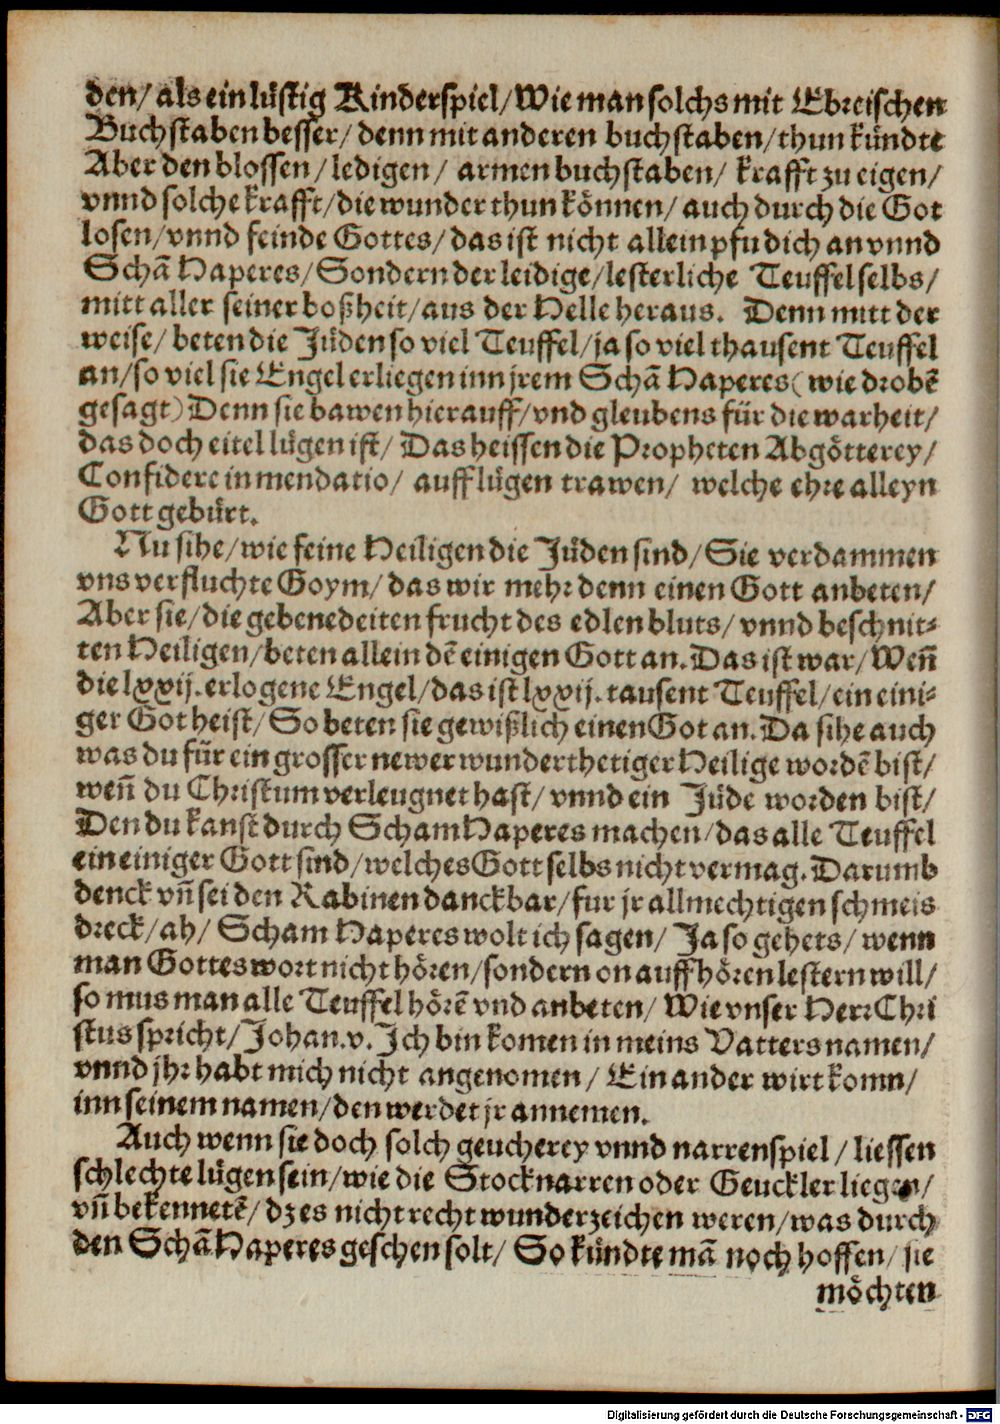 den/ als ein lüstig Kinderspiel/ Wie man solchs mit Ebreischen
Buchstaben besser/ denn mit anderen buchstaben/ thun kündte
Aber den blossen/ ledigen/ armen buchstaben/ krafft zu eigen/
vnnd solche krafft/ die wunder thun können/ auch durch die Got
losen/ vnnd feinde Gottes/ das ist nicht allein pfu dich an vnnd
Schā Haperes/ Sondern der leidige/ lesterliche Teuffel selbs/
mitt aller seiner boßheit/ aus der Helle heraus. Denn mitt der
weise/ beten die Jüden so viel Teuffel/ ja so viel thausent Teuffel
an/ so viel sie Engel erliegen inn jrem Schā Haperes (wie drobē
gesagt) Denn sie bawen hierauff/ vnd gleubens für die warheit/
das doch eitel lügen ist/ Das heissen die Propheten Abgötterey/
Confidere in mendatio/ auff lügen trawen/ welche ehre alleyn
Gott gebürt.
Nu sihe/ wie feine Heiligen die Jüden sind/ Sie verdammen
vns verfluchte Goym/ das wir mehr denn einen Gott anbeten/
Aber sie/ die gebenedeiten frucht des edlen bluts/ vnnd beschnit⸗
ten Heiligen/ beten allein dē einigen Gott an. Das ist war/ Wen̄
die lxxij. erlogene Engel/ das ist lxxij. tausent Teuffel/ ein eini⸗
ger Got heist/ So beten sie gewißlich einen Got an. Da sihe auch
was du für ein grosser newer wunderthetiger Heilige wordē bist/
wen̄ du Christum verleugnet hast/ vnnd ein Jüde worden bist/
Den du kanst durch Scham Haperes machen/ das alle Teuffel
ein einiger Gott sind/ welches Gott selbs nicht vermag. Darumb
denck vn̄ sei den Rabinen danckbar/ fur jr allmechtigen schmeis
dreck/ ah/ Scham Haperes wolt ich sagen/ Ja so gehets/ wenn
man Gottes wort nicht hören/ sondern on auffhören lestern will/
so mus man alle Teuffel hörē vnd anbeten/ Wie vnser Herr Chri
stus spricht/ Johan. v. Ich bin komen in meins Vatters namen/
vnnd jhr habt mich nicht angenomen/ Ein ander wirt komn/
inn seinem namen/ den werdet jr annemen.
Auch wenn sie doch solch geucherey vnnd narrenspiel/ liessen
schlechte lügen sein/ wie die Stocknarren oder Geuckler liegen/
vn̄ bekennetē/ dz es nicht recht wunderzeichen weren/ was durch
den Schā Haperes geschen solt/ So kündte mā noch hoffen/ sie
möchten
Digitalisierung gefördert durch die Deutsche Forschungsgemeinschaft - DFG